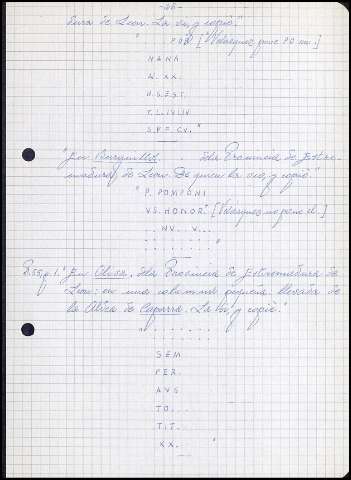 dura de Leon. La vi, y copié."
" POR [Velazquez pone PO en.]
NANA
W. XX.
H.S.EST.
T.L.IVLIV
SPECV."
"En Burguillos . . . dela Provincia de Estre-
madura de Leon. De quien la vio, y copié."
" P. POMPONI
VS. HONOR" [Velazquez no pone el .]
. . NV. . V. . .
. . . . . . . "
"En Oliva, dela Provincia de Estremadura de
Leon: en una columna pequeña llevada de
la Oliva de Caparra. La vi, y copié."
" . . . . . . .
SEM
PER.
AVG
TO. . .
TIT. . .
XX. "